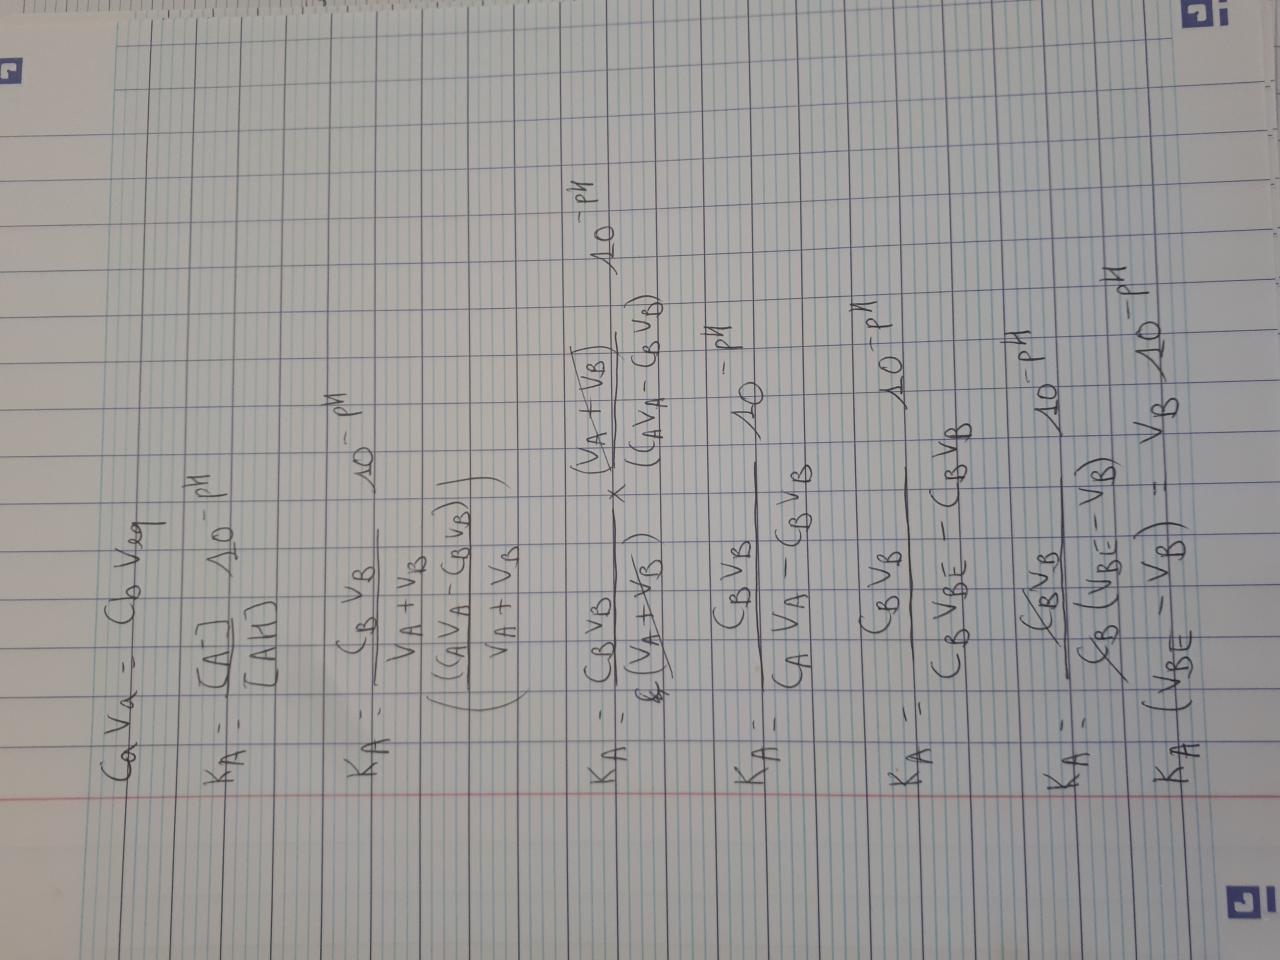 CaVa = Cb Veq
KA = [A-]/[AH] 10^-pH
KA = (CB VB / VA + VB) / ((CAVA - CB VB) / VA + VB) 10^-pH
KA = CB VB / (VA + VB) × (VA + VB) / (CAVA - CB VB) 10^-pH
KA = CB VB / CA VA - CB VB 10^-pH
KA = CB VB / CB VBE - CB VB 10^-pH
KA = CB VB / CB (VBE - VB) 10^-pH
KA (VBE - VB) = VB 10^-pH